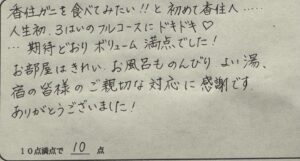 香住ガニを食べてみたい!!と初めて香住人……
人生初、3ばいのフルコースにドキドキ♡
…期待どおりボリューム満点でした!
お部屋はきれい、お風呂ものんびりよい湯、
宿の皆様のご親切な対応に感謝です
ありがとうございました!
10点満点で 10 点